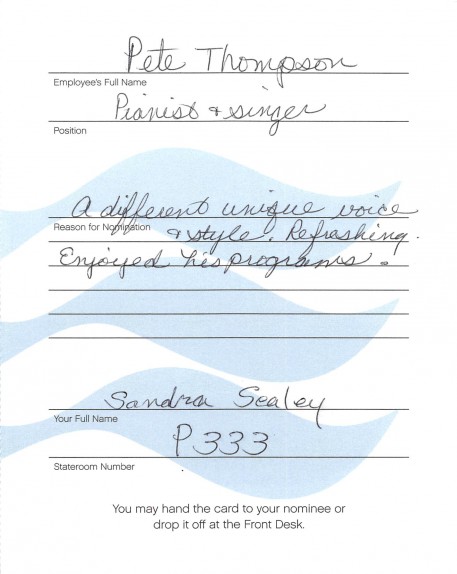 Pete Thompson
Employee's Full Name
Pianist + singer
Position
A different unique voice
Reason for Nomination
+ style. Refreshing.
Enjoyed his programs.
Sandra Sealey
Your Full Name
P333
Stateroom Number
You may hand the card to your nominee or
drop it off at the Front Desk.